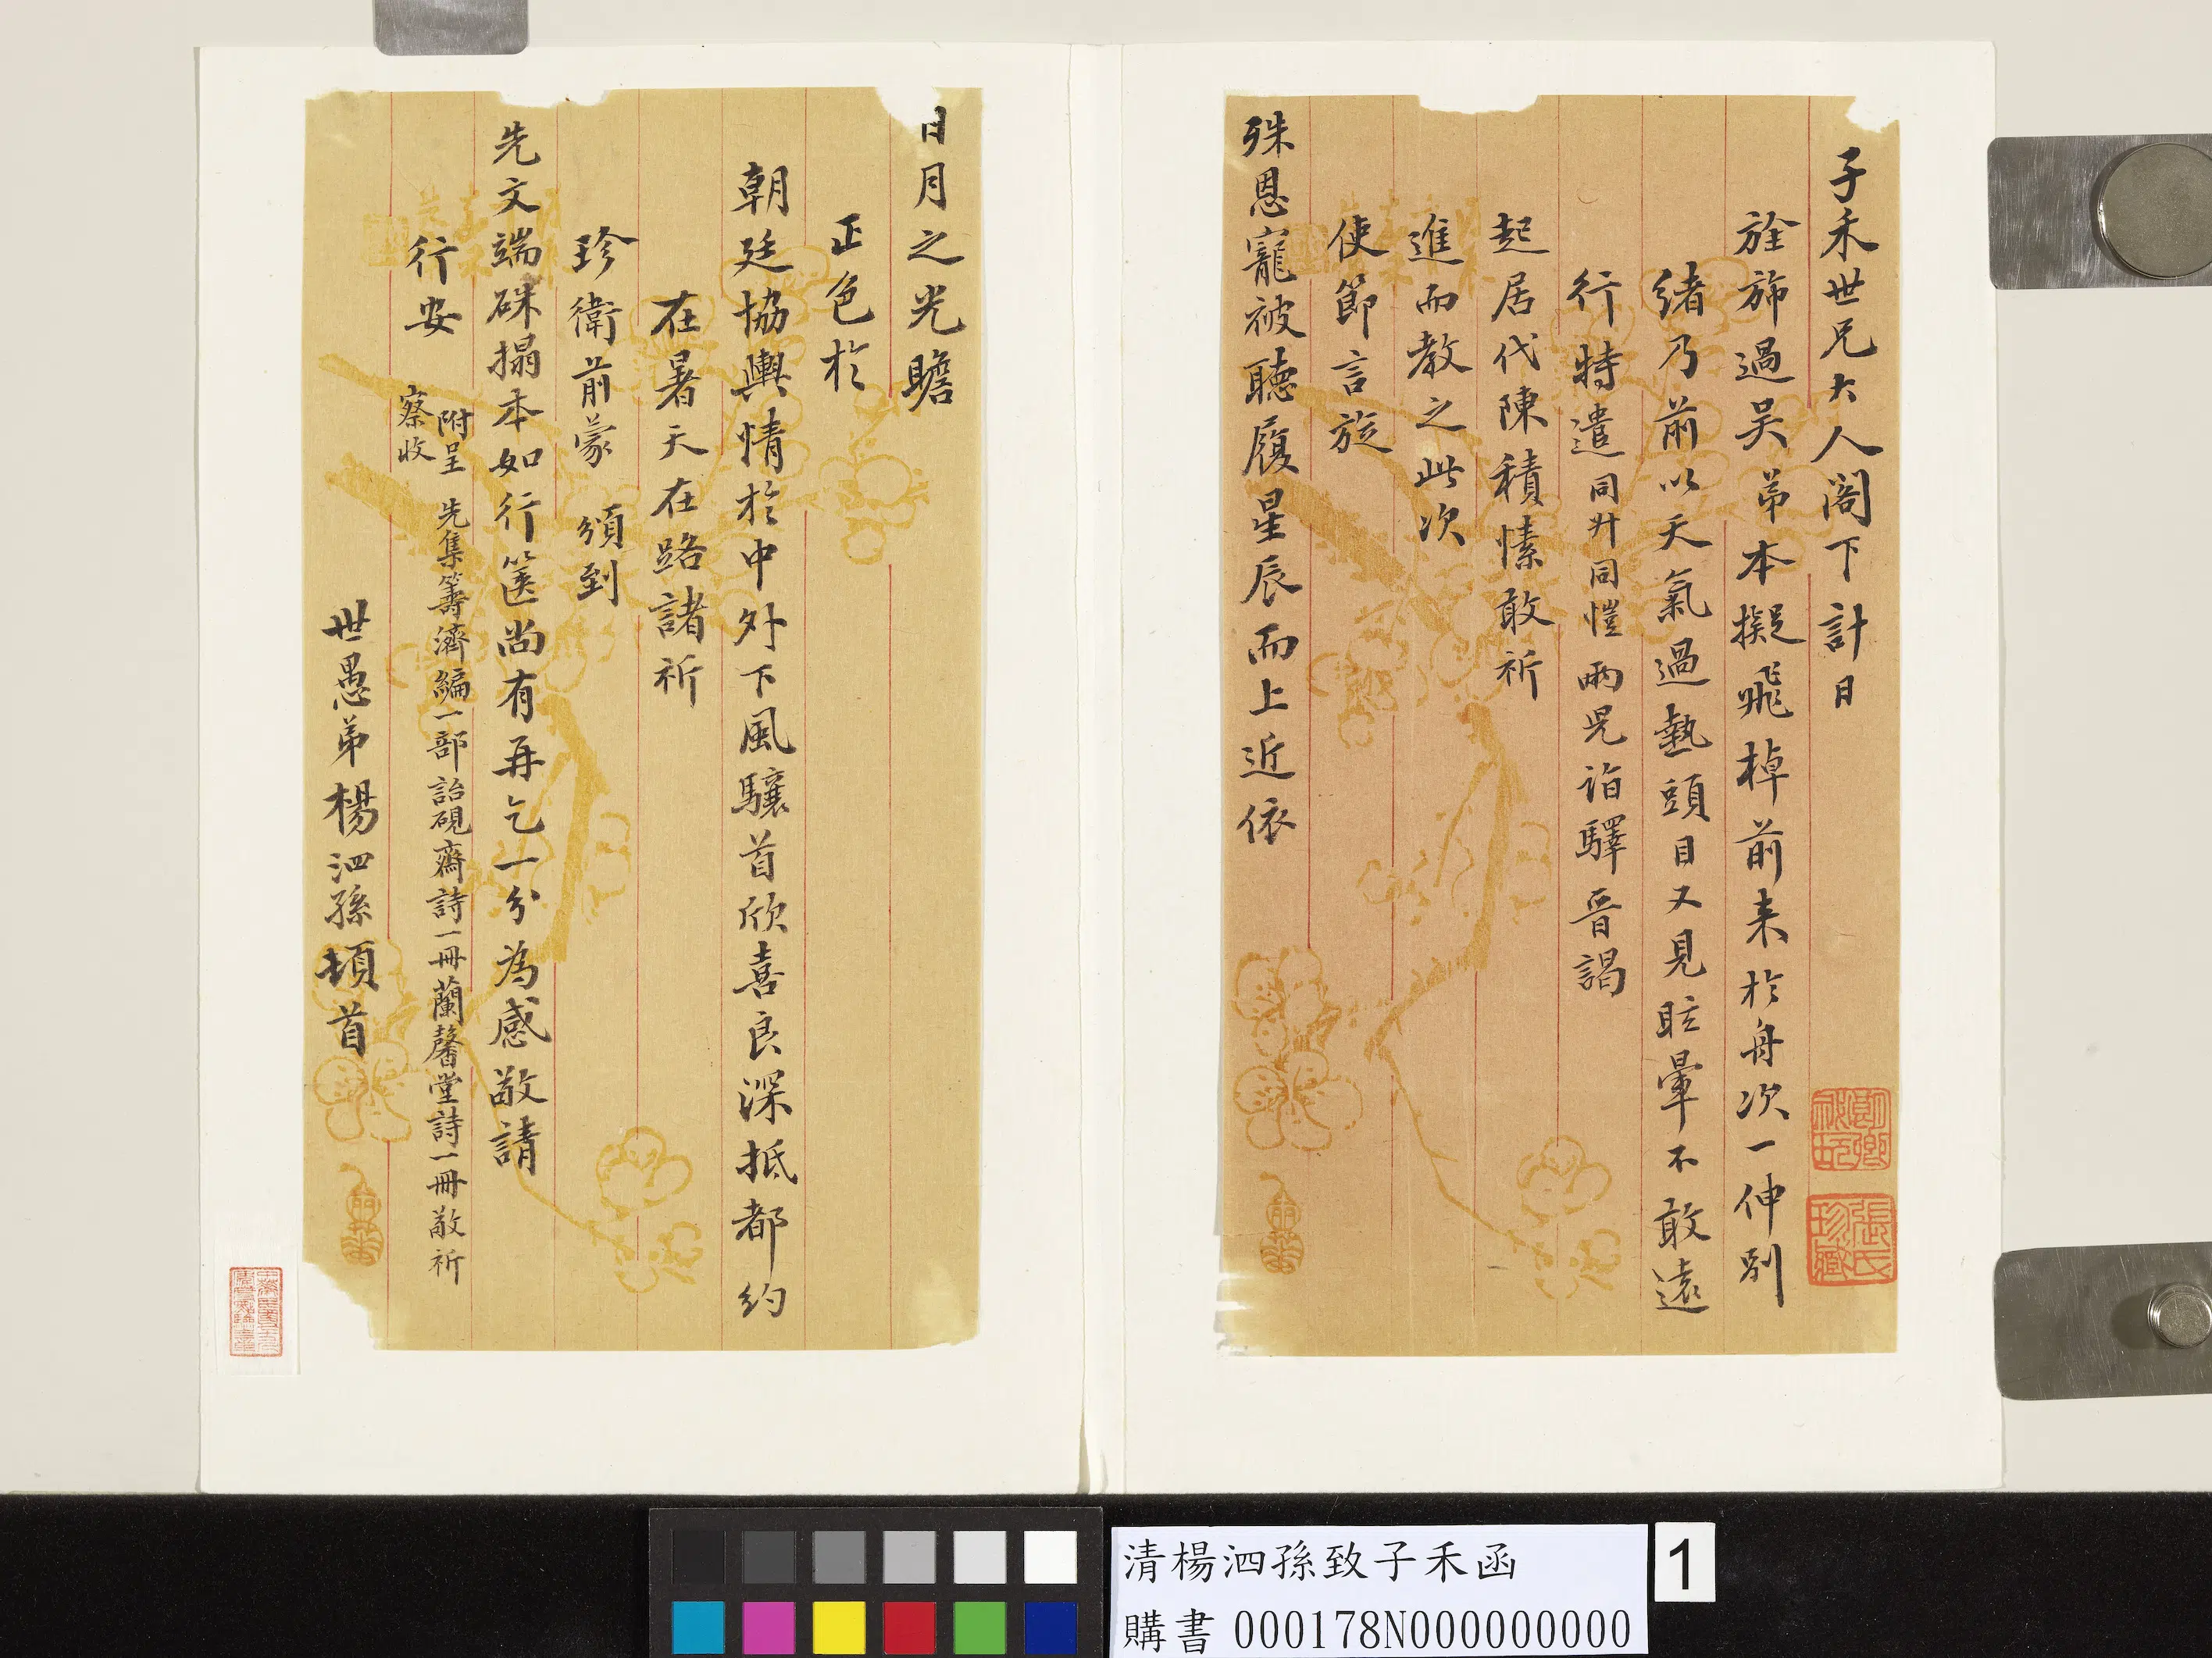 子禾世兄大人閣下計日
旌旆過吴弟本擬飛棹前来於舟次一伸别
緒乃前以天氣過熱頭目又見眩暈不敢遠
行特遣同升同愷兩兒詣驛晉謁
起居代陳積愫敢祈
進而教之此次
使節言旋
殊恩寵被聽履星辰而上近依
日月之光瞻
正色於
朝廷協輿情於中外下風驤首欣喜良深抵都約
在暑天在路諸祈
珍衛前蒙 頒到
先文端硃搨本如行篋尚有再乞一分為感敬請
行安
附呈 先集籌濟編一部詒硯齋詩一冊蘭馨堂詩一冊敬祈
察收
世愚弟楊泗孫頓首
張氏珍臧
雨華
雨華
清楊泗孫致子禾函
購書 000178N000000000
1